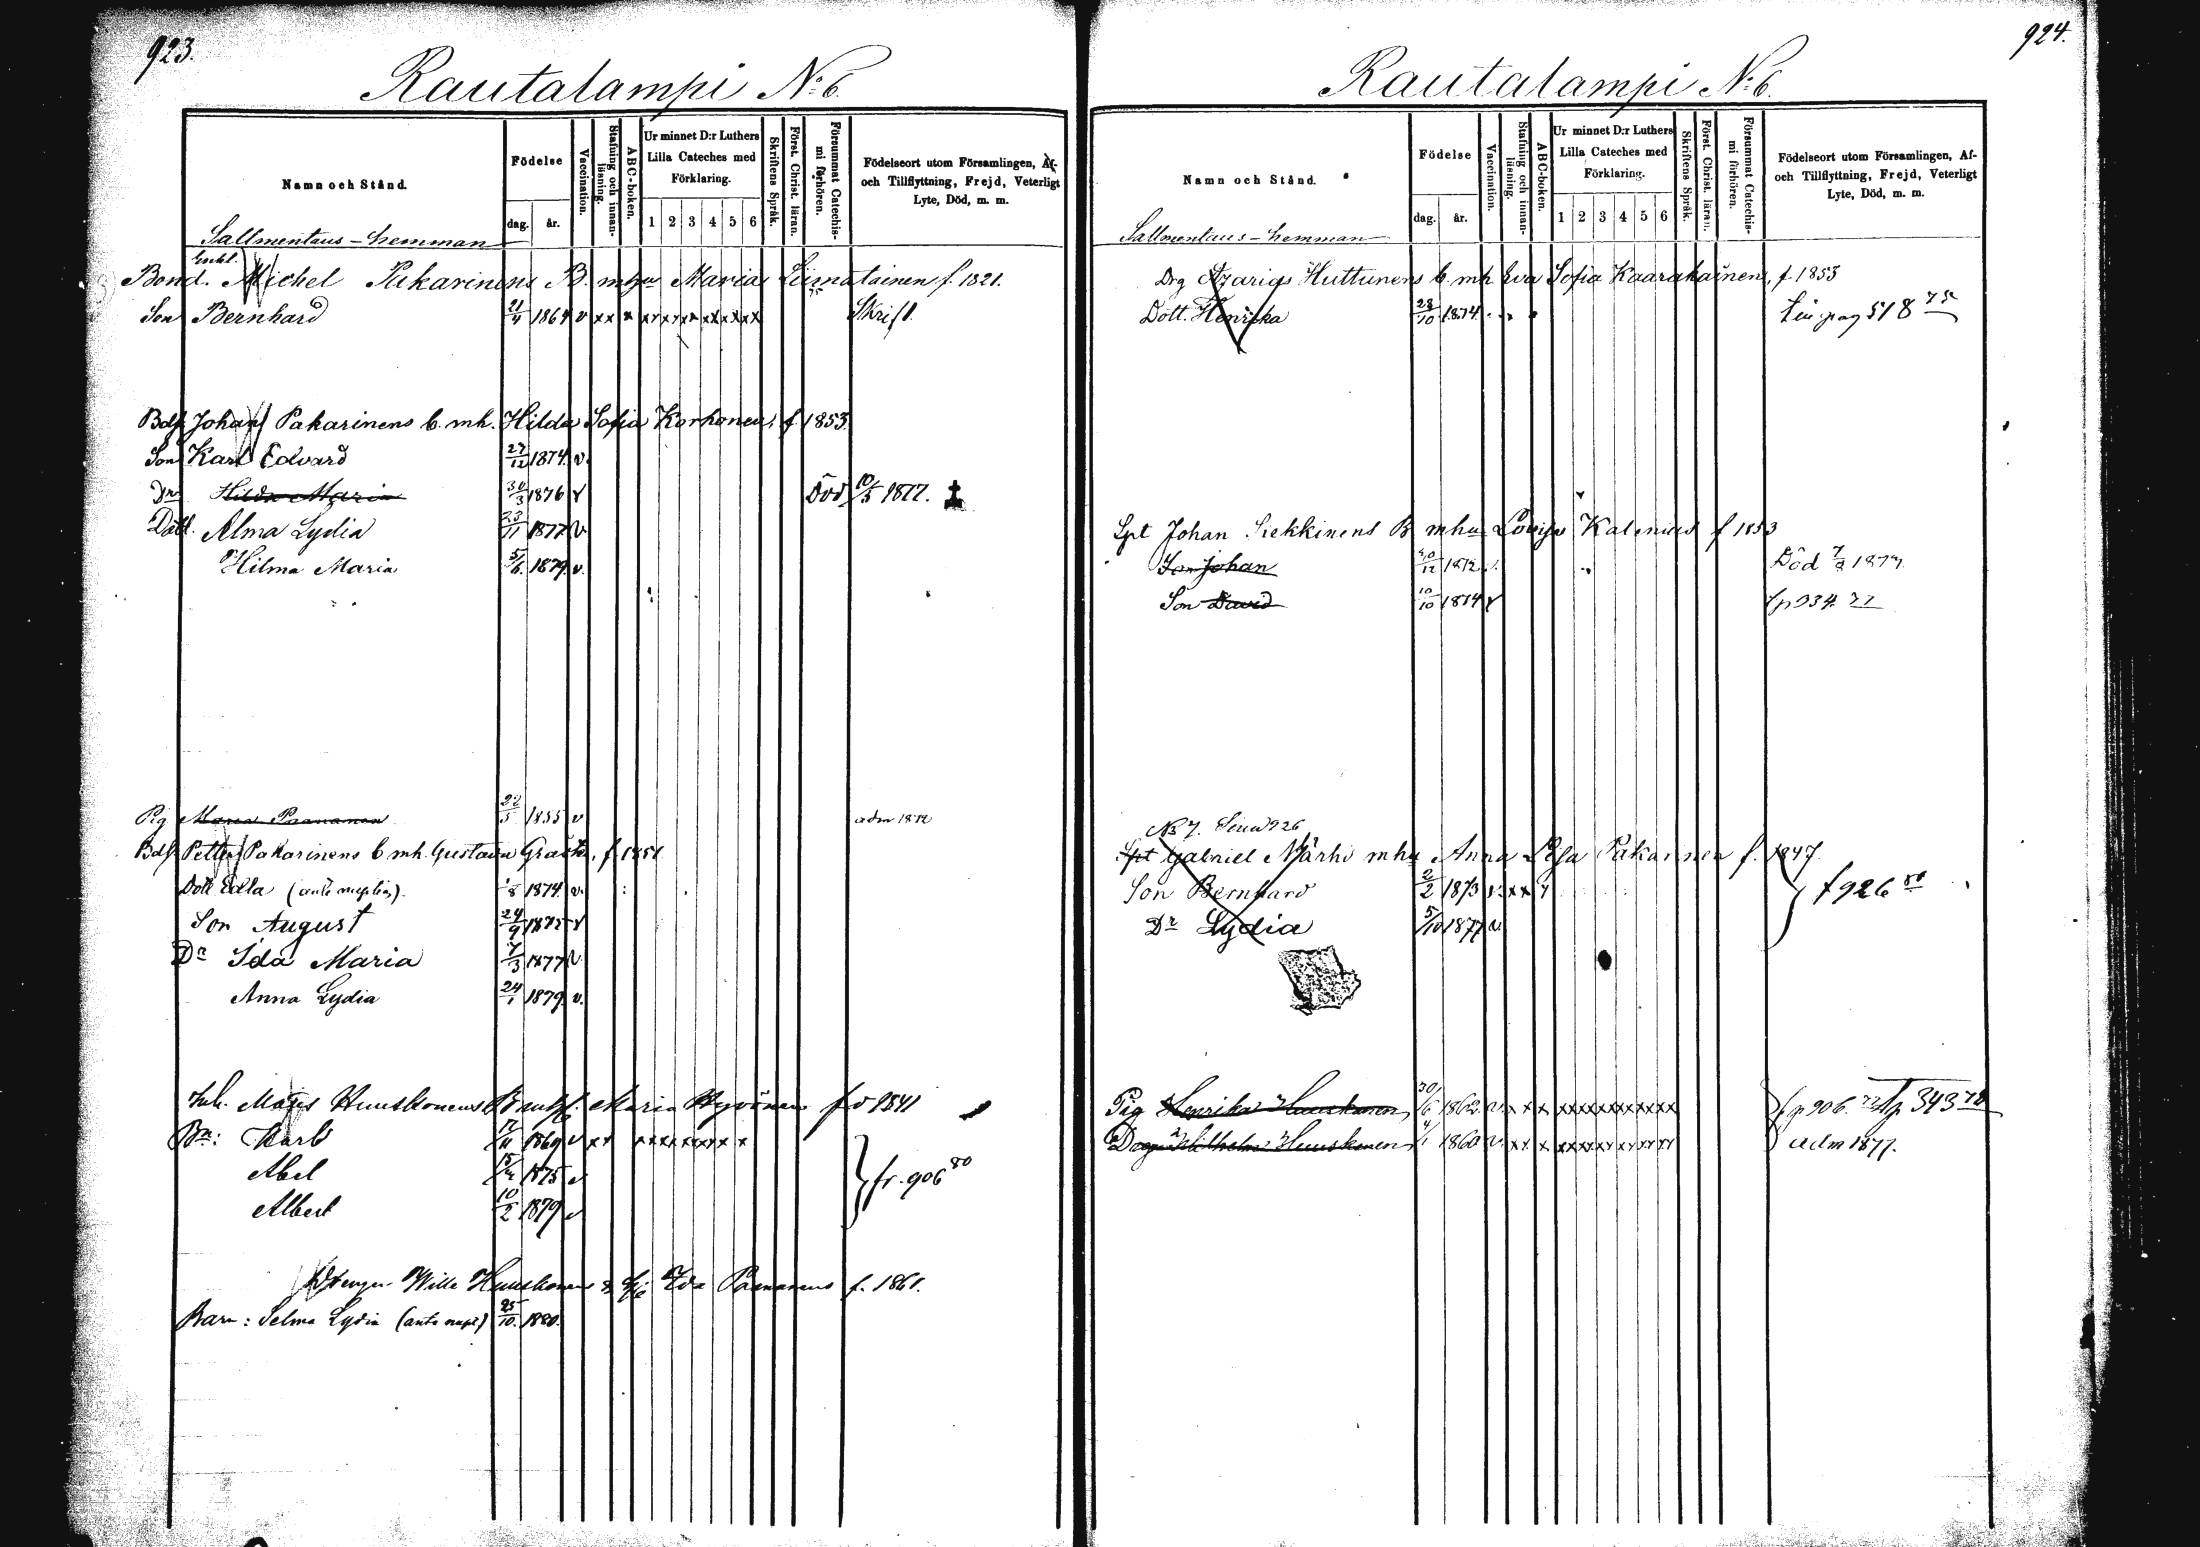 923.
Rautalampi No 6.
Namn och Stånd.
Födelse
dag. år.
Vaccination.
Stafning och innan-
läsning.
ABC-boken.
Ur minnet D:r Luthers
Lilla Cateches med
Förklaring.
1 2 3 4 5 6
Skriftens Språk.
Först. Christ. läran.
Försummat Catechis-
mi förhören.
Födelseort utom Församlingen, Af-
och Tillflyttning, Frejd, Veterligt
Lyte, Död, m. m.
Sallmentaus-hemman
Enkl.
Bond. Michel Pakarinens B. m Maria Liimatainen f. 1821.
Son Bernhard 21/4 1864 v x x x x x x x x x x x x x x x Skrift.
Johan Pakarinens b. mh. Hilda Sofia Korhonen, f 1853.
Son Karl Edvard 27/12 1874. v.
Dr Hilda Maria 30/3 1876 v Död 10/5 1877.
Dott. Alma Lydia 23/11 1877 v.
Hilma Maria 5/6. 1879. v.
Pig Maria Paananen 22/5 1855 v adm 1872
Petter Pakarinens b mh. Gustava, f. 1851
Dott Edla (ante nuptias). /8 1874 v.
Son August 24/9 1875 v
Dr Ida Maria 7/3 1877 v.
Anna Lydia 24/1 1879. v.
Inh. Mats Huuskonens B Maria Hyvönen f 1841
Bn: Karl 1869 v x x x x x x x x x x x
Abel 1875 v
fr. 906 80
Albert 10/2 1879 v
Drengen Wille Huuskonens Ida Paananens f. 1861.
Barn: Selma Lydia (ante nupt) 25/10. 1880.
924.
Rautalampi No 6.
Namn och Stånd.
Födelse
dag. år.
Vaccination.
Stafning och innan-
läsning.
ABC-boken.
Ur minnet D:r Luthers
Lilla Cateches med
Förklaring.
1 2 3 4 5 6
Skriftens Språk.
Först. Christ. läran.
Försummat Catechis-
mi förhören.
Födelseort utom Församlingen, Af-
och Tillflyttning, Frejd, Veterligt
Lyte, Död, m. m.
Sallmentaus-hemman
Drg Azarias Huttunens b. mh Eva Sofia Kaarakainen, f. 1853
Dott. Henrika 28/10 1874. 518 75
Spt Johan Siekkinens B mhu Lovisa f 1853
Son Johan /12 1872 Död 1877.
Son David 10/10 1874 v 934. 77
No 7. 926
Spt Gabriel Närhi mhu Anna Lisa Pakarinen f. 1847.
Son Bernhard 2/2 1873 v. x x
f 926 80
Dr Lydia 5/10 1877 v
Pig Henrika Huuskonen, 30/6 1862. v. x x x x x x x x x x x x x p 906. 343 78
Dreng Wilhelm Huuskonen 1860 v. x x x x x x x x x x x x adm 1877.